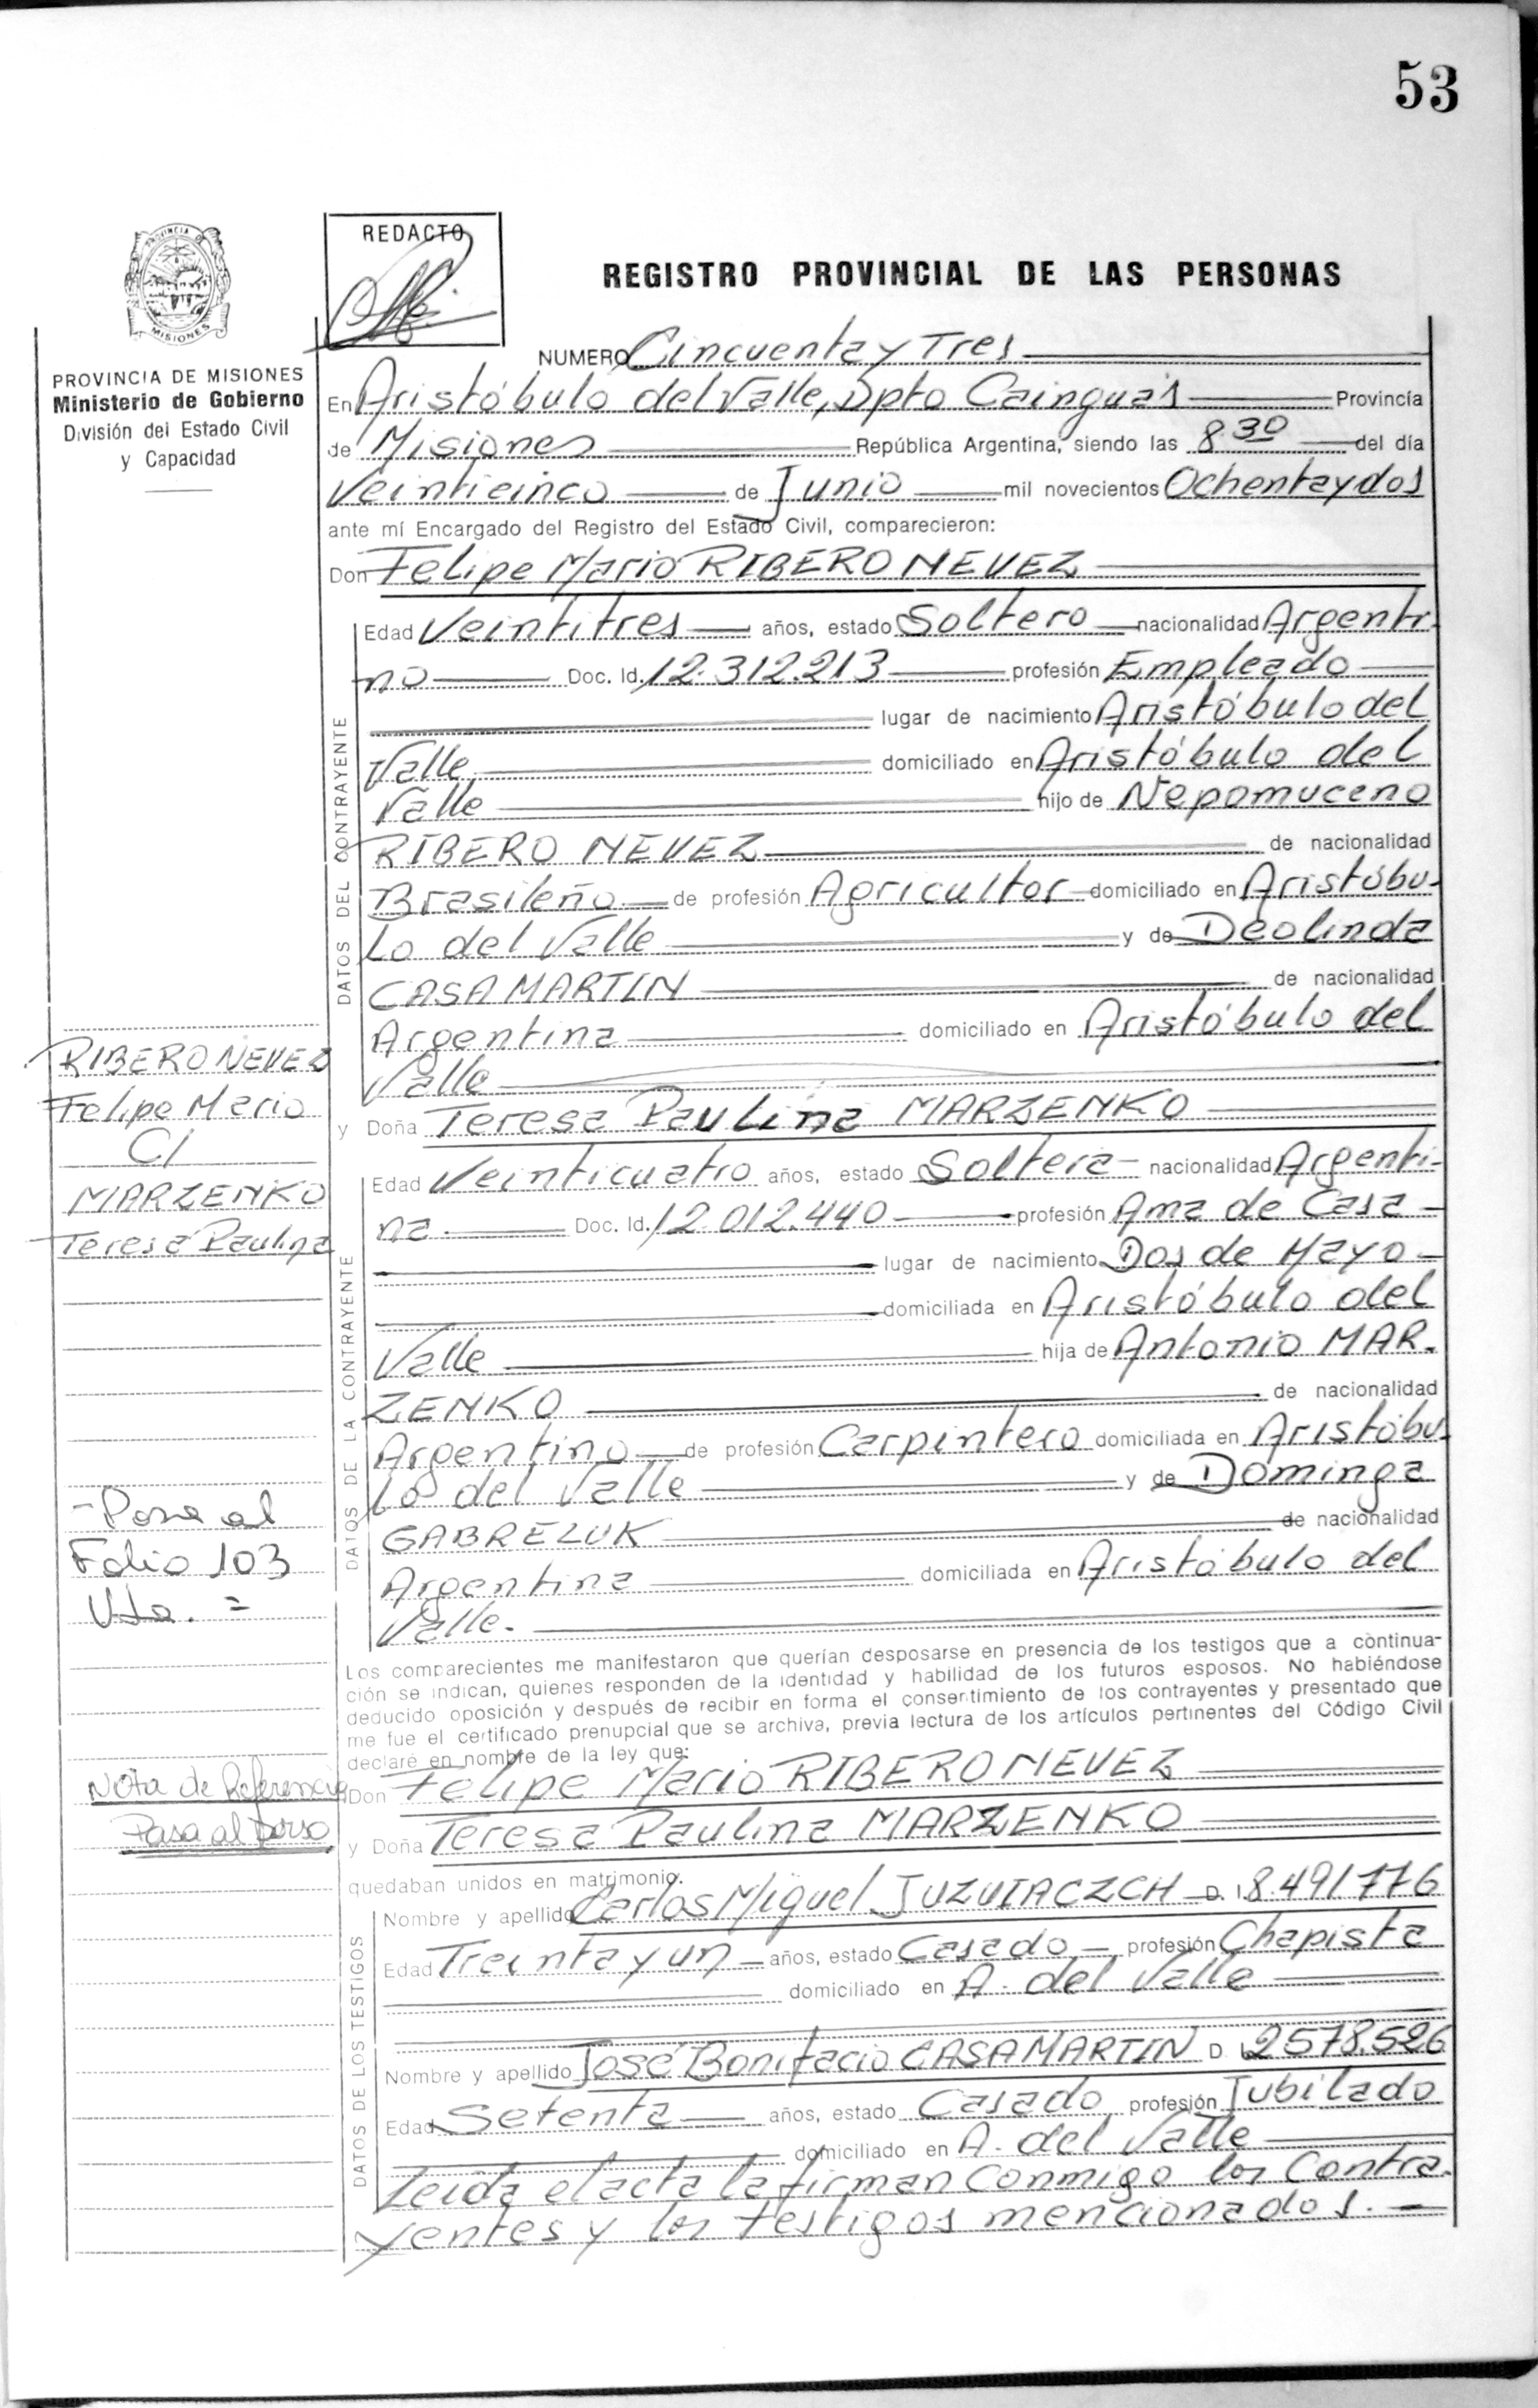 53
PROVINCIA DE
MISIONES
REDACTO
REGISTRO PROVINCIAL DE LAS PERSONAS
PROVINCIA DE MISIONES
Ministerio de Gobierno
División del Estado Civil
y Capacidad
NUMERO Cincuenta y Tres
En Aristóbulo del Valle, Dpto Cainguás Provincia
de Misiones República Argentina, siendo las 8.30 del día
Veinticinco de Junio mil novecientos Ochenta y dos
ante mí Encargado del Registro del Estado Civil, comparecieron:
Don Felipe Mario RIBERO NEVEZ
DATOS DEL CONTRAYENTE
Edad Veintitres años, estado Soltero nacionalidad Argenti-
no Doc. Id. 12.312.213 profesión Empleado
lugar de nacimiento Aristóbulo del
Valle domiciliado en Aristóbulo del
Valle hijo de Nepomuceno
RIBERO NEVEZ de nacionalidad
Brasileño de profesión Agricultor domiciliado en Aristóbu-
lo del Valle y de Deolinda
CASAMARTIN de nacionalidad
Argentina domiciliado en Aristóbulo del
Valle
RIBERO NEVEZ
Felipe Mario
C/
MARZENKO
Teresa Paulina
y Doña Teresa Paulina MARZENKO
DATOS DE LA CONTRAYENTE
Edad Veinticuatro años, estado Soltera nacionalidad Argenti-
na Doc. Id. 12.012.440 profesión Ama de Casa
lugar de nacimiento Dos de Mayo
domiciliada en Aristóbulo del
Valle hija de Antonio MAR-
ZENKO de nacionalidad
Argentino de profesión Carpintero domiciliada en Aristóbu-
lo del Valle y de Dominga
GABRELUK de nacionalidad
Argentina domiciliada en Aristóbulo del
Valle.
-Pasa al
Folio 103
Vta. =
Los comparecientes me manifestaron que querían desposarse en presencia de los testigos que a continua-
ción se indican, quienes responden de la identidad y habilidad de los futuros esposos. No habiéndose
deducido oposición y después de recibir en forma el consentimiento de los contrayentes y presentado que
me fue el certificado prenupcial que se archiva, previa lectura de los artículos pertinentes del Código Civil
declaré en nombre de la ley que:
Nota de Referencia
Pasa al Dorso
Don Felipe Mario RIBERO NEVEZ
y Doña Teresa Paulina MARZENKO
quedaban unidos en matrimonio.
DATOS DE LOS TESTIGOS
Nombre y apellido Carlos Miguel JUZVIACZCH D. I 8.491776
Edad Treinta y un años, estado Casado profesión Chapista
domiciliado en A. del Valle
Nombre y apellido José Bonifacio CASAMARTIN D. I. 2578.526
Edad Setenta años, estado Casado profesión Jubilado
domiciliado en A. del Valle
Leida el acta la firman Conmigo los Contra-
yentes y los testigos mencionados.-